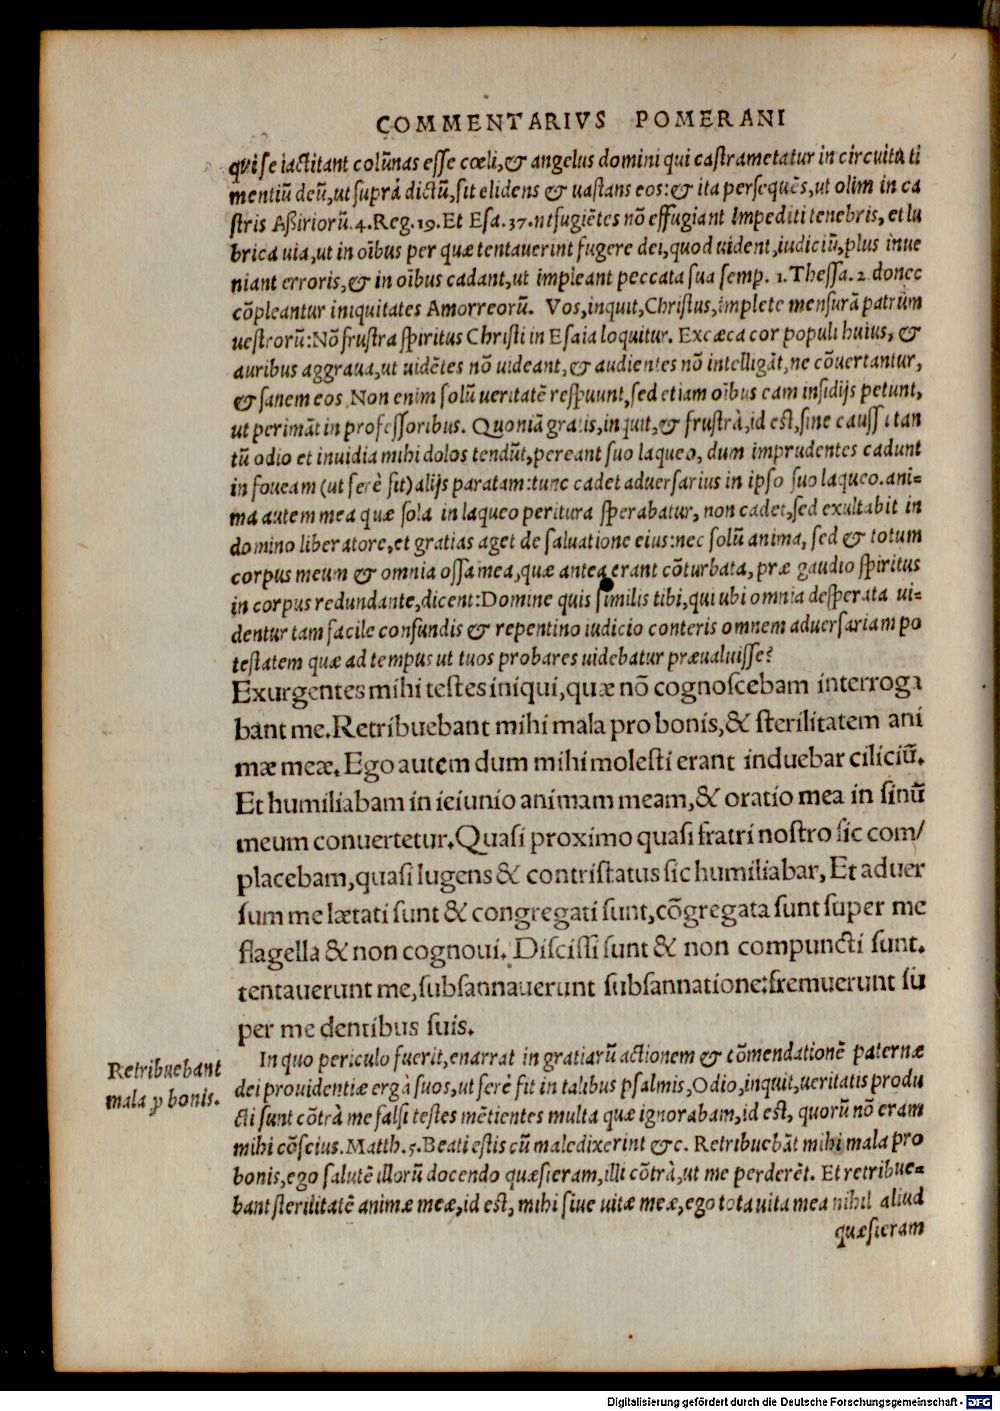 COMMENTARIVS POMERANI
qui se iactitant colũnas esse cœli,& angelus domini qui castrametatur in circuitu ti
mentiũ deũ,ut suprà dictũ,sit elidens & uastans eos:& ita persequẽs,ut olim in ca
stris Aßiriorũ.4.Reg.19.Et Esa.37.ut fugiẽtes nõ effugiant Impediti tenebris,et lu
brica uia,ut in oĩbus per quæ tentauerint fugere dei,quod uident,iudiciũ,plus inue
niant erroris,& in oĩbus cadant,ut impleant peccata sua semp. 1.Thessa.2 donec
cõpleantur iniquitates Amorreorũ. Vos,inquit,Christus,implete mensurã patrum
uestrorũ:Nõ frustra spiritus Christi in Esaia loquitur. Excæca cor populi huius, &
auribus aggraua,ut uidẽtes nõ uideant,& audientes nõ intelligãt,ne cõuertantur,
& sanem eos Non enim solũ ueritatẽ respuunt,sed etiam oĩbus eam insidijs petunt,
ut perimãt in professoribus. Quoniã gratis,inquit,& frustrà,id est,sine caussa tan
tũ odio et inuidia mihi dolos tendũt,pereant suo laqueo, dum imprudentes cadunt
in foueam (ut ferè fit) alijs paratam:tunc cadet aduersarius in ipso suo laqueo.ani-
ma autem mea quæ sola in laqueo peritura sperabatur, non cadet,sed exultabit in
domino liberatore,et gratias aget de saluatione eius:nec solũ anima, sed & totum
corpus meum & omnia ossa mea,quæ antea erant cõturbata, præ gaudio spiritus
in corpus redundante,dicent:Domine quis similis tibi,qui ubi omnia desperata ui-
dentur tam facile confundis & repentino iudicio conteris omnem aduersariam po
testatem quæ ad tempus ut tuos probares uidebatur præualuisse?
Exurgentes mihi testes iniqui,quæ nõ cognoscebam interroga
bant me.Retribuebant mihi mala pro bonis,& sterilitatem ani
mæ meæ.Ego autem dum mihi molesti erant induebar ciliciũ.
Et humiliabam in ieiunio animam meam,& oratio mea in sinũ
meum conuertetur.Quasi proximo quasi fratri nostro sic com/
placebam,quasi lugens & contristatus sic humiliabar, Et aduer
sum me lætati sunt & congregati sunt,cõgregata sunt super me
flagella & non cognoui. Discissi sunt & non compuncti sunt.
tentauerunt me,subsannauerunt subsannatione:fremuerunt su
per me dentibus suis.
Retribuebant
mala ꝑ bonis.
In quo periculo fuerit,enarrat in gratiarũ actionem & cõmendationẽ paternæ
dei prouidentiæ ergà suos,ut ferè fit in talibus psalmis,Odio,inquit,ueritatis produ
cti sunt cõtrà me falsi testes mẽtientes multa quæ ignorabam,id est, quorũ nõ eram
mihi cõscius.Matth.5.Beati estis cũ maledixerint &c. Retribuebãt mihi mala pro
bonis,ego salutẽ illorũ docendo quæsieram,illi cõtrà,ut me perderẽt. Et retribue-
bant sterilitatẽ animæ meæ,id est, mihi siue uitæ meæ,ego tota uita mea nihil aliud
quæsieram
Digitalisierung gefördert durch die Deutsche Forschungsgemeinschaft - DFG